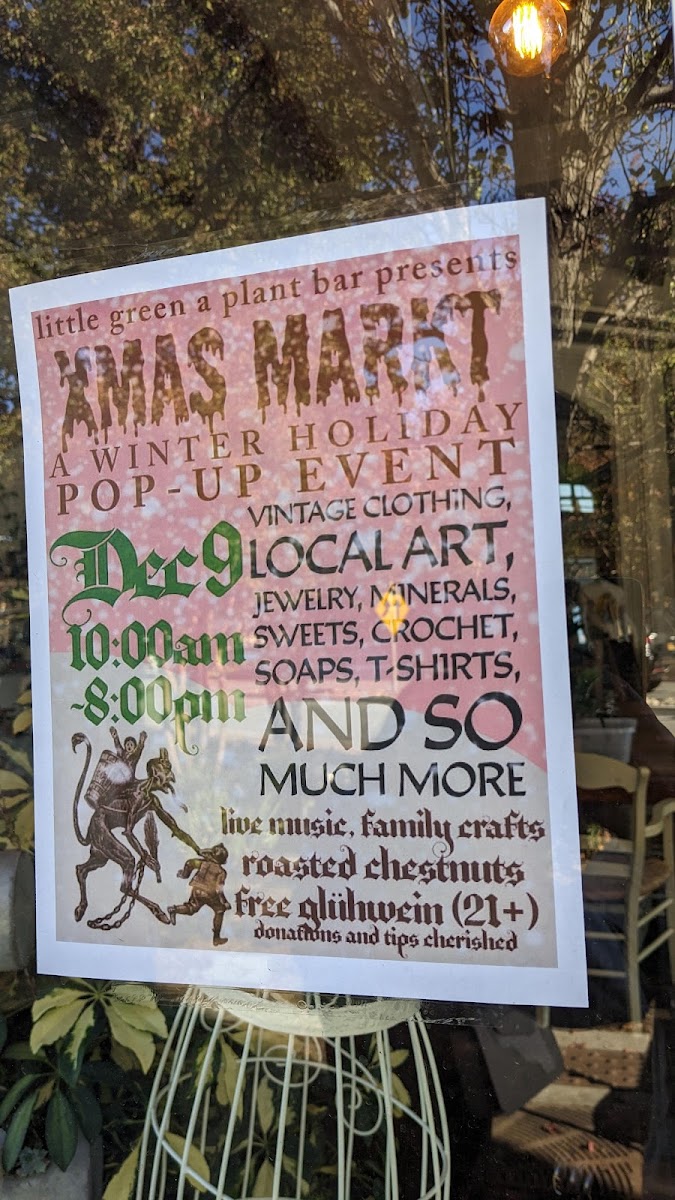 little green a plant bar presents
XMAS MARKT
A WINTER HOLIDAY
POP-UP EVENT
Dec 9
10:00am
-8:00pm
VINTAGE CLOTHING,
LOCAL ART,
JEWELRY, MINERALS,
SWEETS, CROCHET,
SOAPS, T-SHIRTS,
AND SO
MUCH MORE
live music, family crafts
roasted chestnuts
free glühwein (21+)
donations and tips cherished